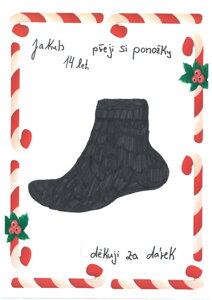 Jakub přeji si ponožky
14 let
děkuji za dárek